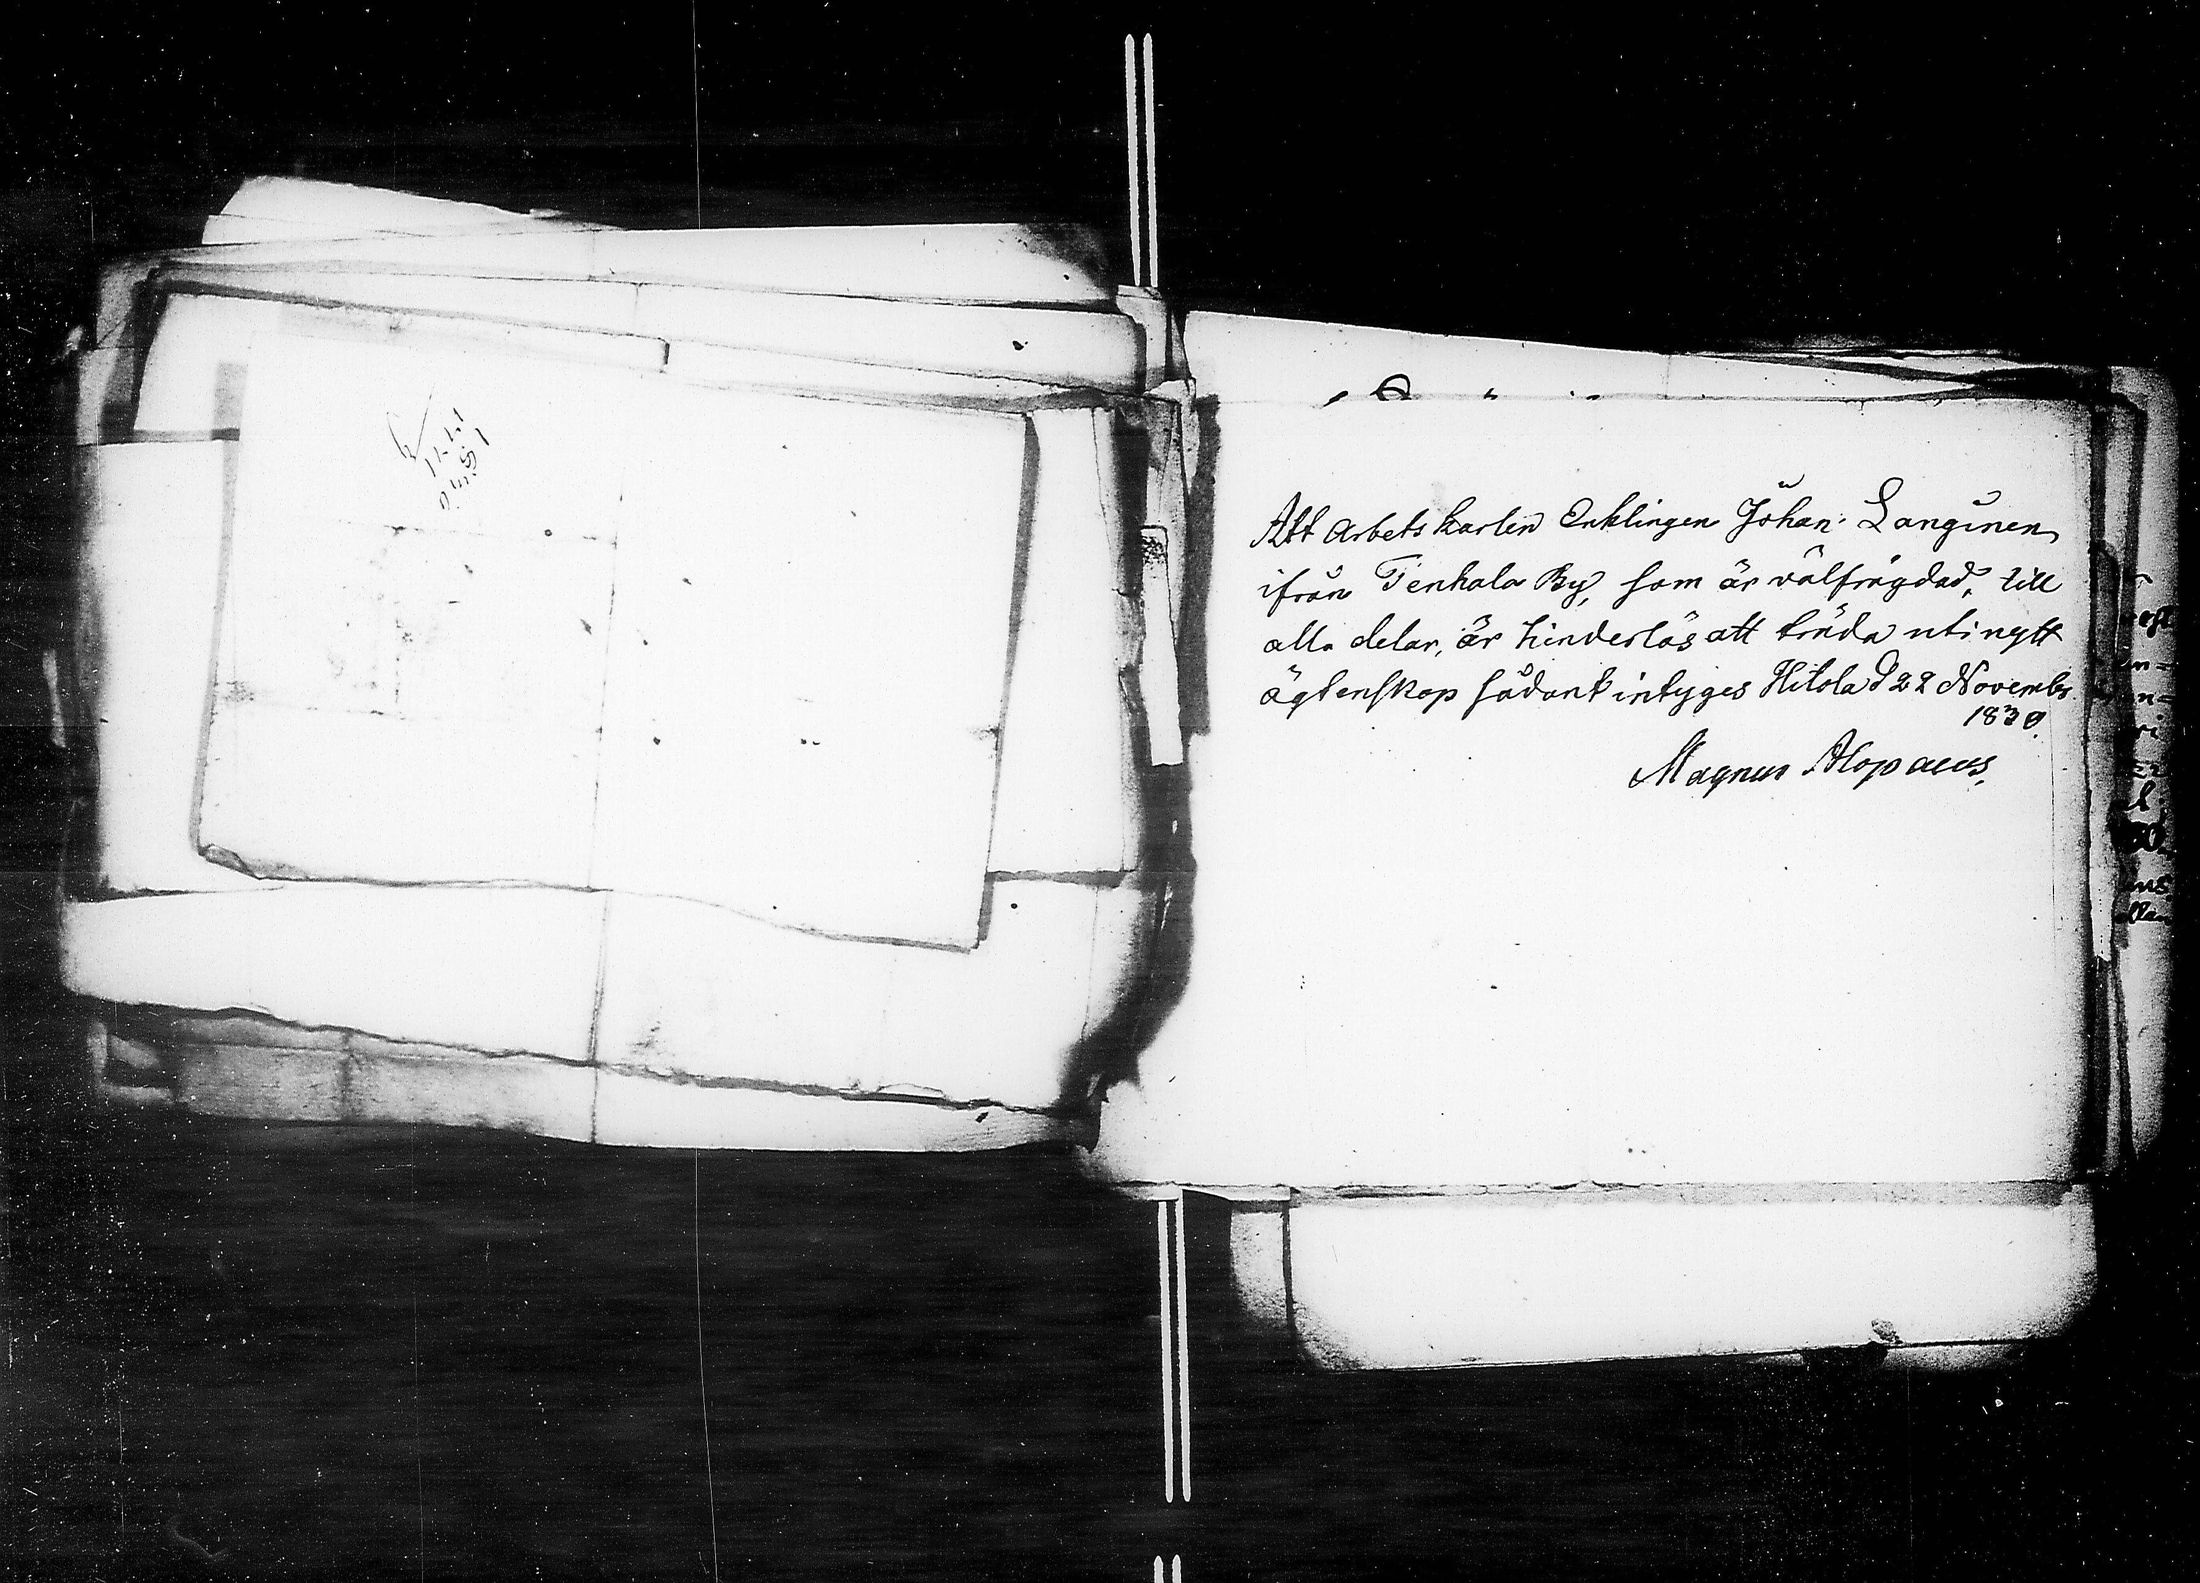 Att arbetskarlen Enklingen Johan Langinen
ifrån Tenhala By, som är välfrägdad, till
alla delar, är hinderlös att träda uti nytt
ägtenskap sådant intyges Hitola d 22 Novembr
1830
Magnus Alopaeus.